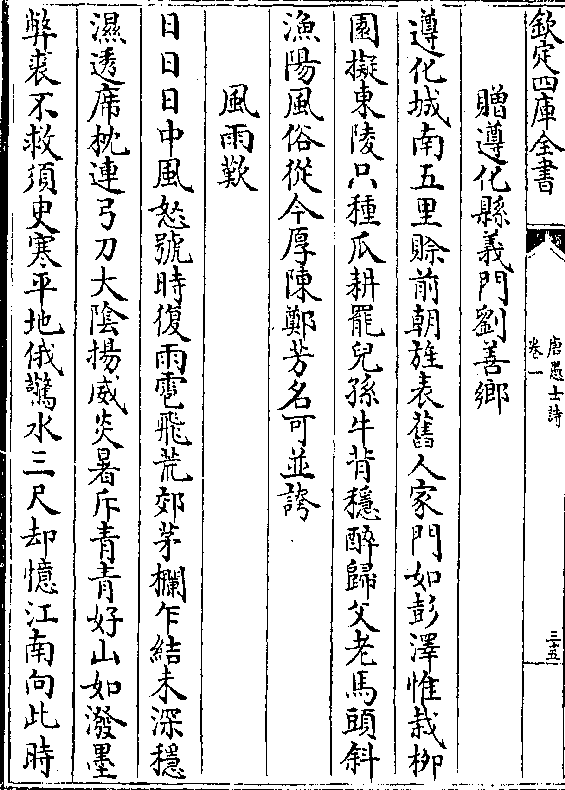 欽定四庫全書
唐愚士詩
卷一
三五
贈遵化縣義門劉善鄉
遵化城南五里賖前朝旌表舊人家門如彭澤惟栽柳
園擬東陵只種瓜耕罷兒孫牛背穩醉歸父老馬頭斜
漁陽風俗從今厚陳鄭芳名可並誇
風雨歎
日日日中風怒號時復雨雹飛荒郊茅欄乍結未深穩
濕透席枕連弓刀大陰揚威炎暑斥青青好山如潑墨
弊裘不救須史寒平地俄驚水三尺却憶江南向此時